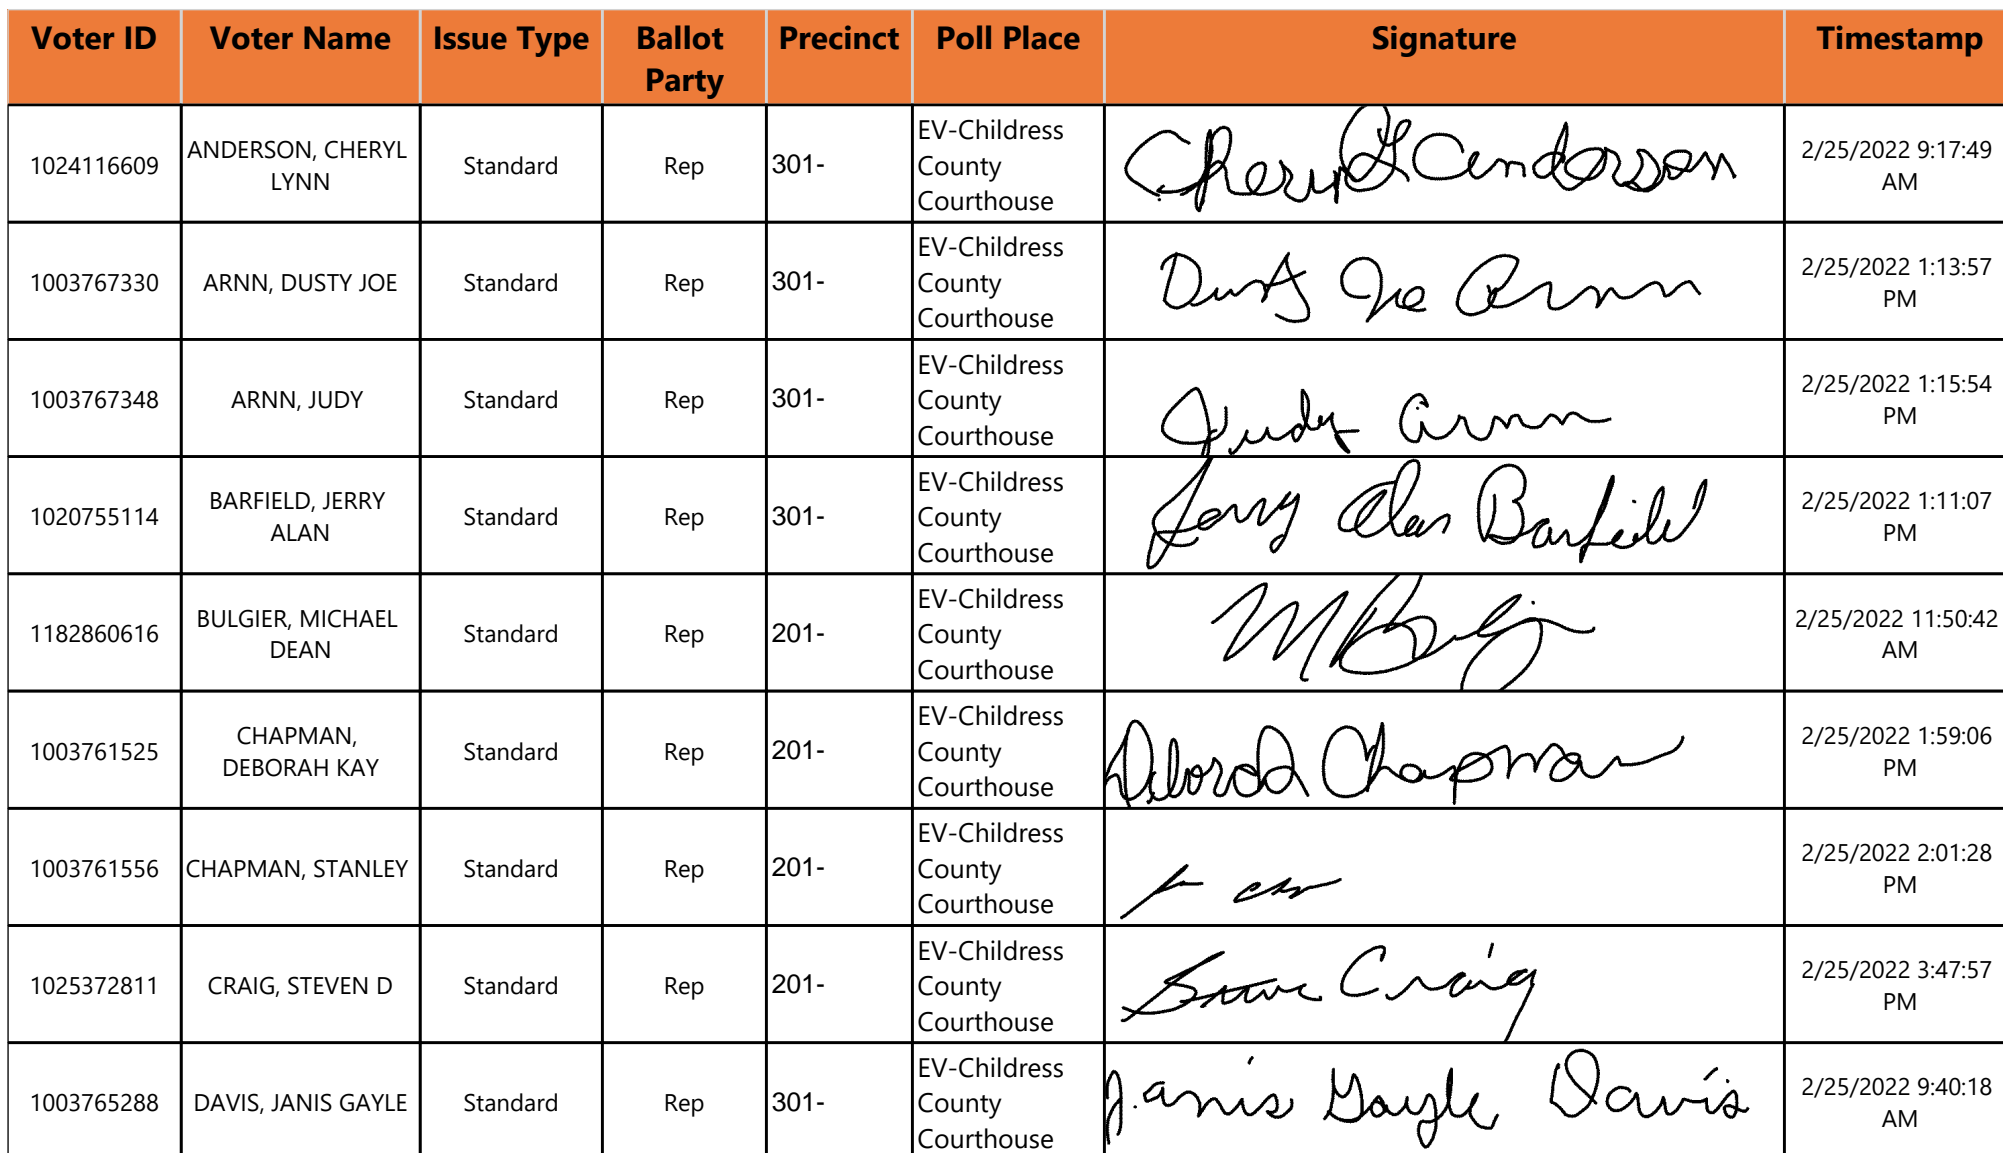 Voter ID Voter Name Issue Type Ballot Party Precinct Poll Place Signature Timestamp
1024116609 ANDERSON, CHERYL LYNN Standard Rep 301- EV-Childress County Courthouse Cheryl L Anderson 2/25/2022 9:17:49 AM
1003767330 ARNN, DUSTY JOE Standard Rep 301- EV-Childress County Courthouse Dusty Joe Arnn 2/25/2022 1:13:57 PM
1003767348 ARNN, JUDY Standard Rep 301- EV-Childress County Courthouse Judy Arnn 2/25/2022 1:15:54 PM
1020755114 BARFIELD, JERRY ALAN Standard Rep 301- EV-Childress County Courthouse Jerry Alan Barfield 2/25/2022 1:11:07 PM
1182860616 BULGIER, MICHAEL DEAN Standard Rep 201- EV-Childress County Courthouse 2/25/2022 11:50:42 AM
1003761525 CHAPMAN, DEBORAH KAY Standard Rep 201- EV-Childress County Courthouse Deborah Chapman 2/25/2022 1:59:06 PM
1003761556 CHAPMAN, STANLEY Standard Rep 201- EV-Childress County Courthouse 2/25/2022 2:01:28 PM
1025372811 CRAIG, STEVEN D Standard Rep 201- EV-Childress County Courthouse Steve Craig 2/25/2022 3:47:57 PM
1003765288 DAVIS, JANIS GAYLE Standard Rep 301- EV-Childress County Courthouse Janis Gayle Davis 2/25/2022 9:40:18 AM